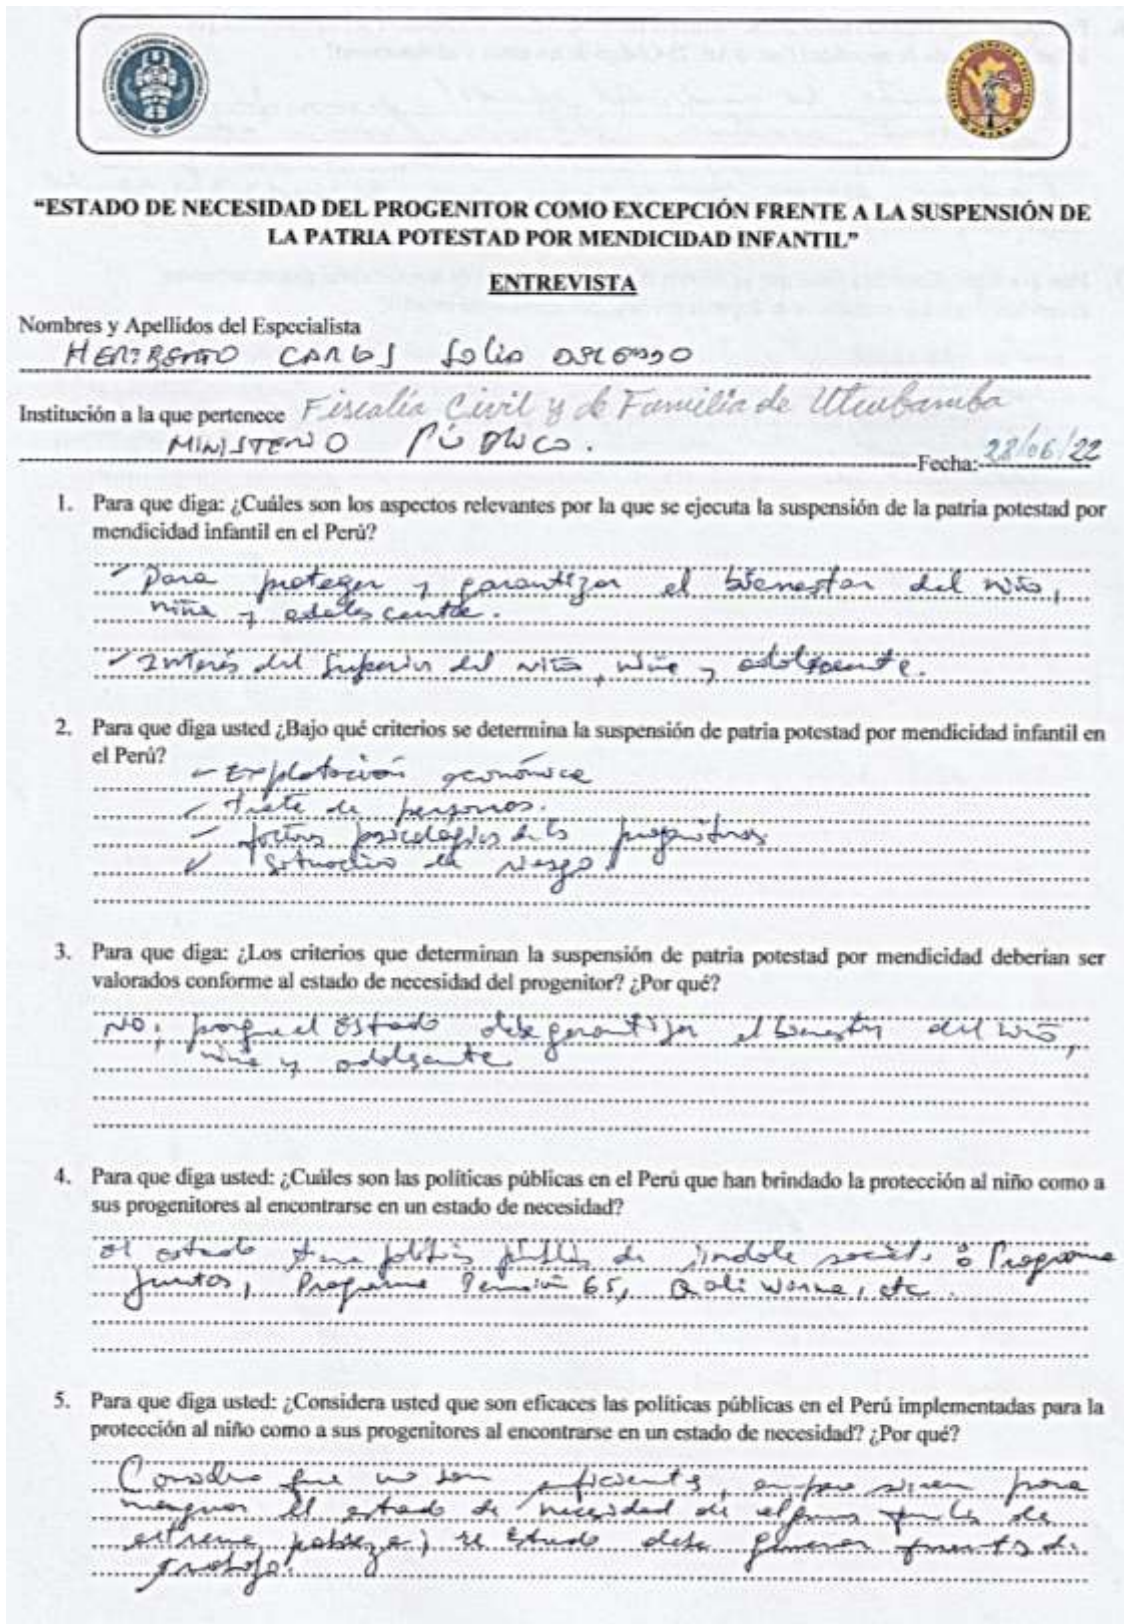 “ESTADO DE NECESIDAD DEL PROGENITOR COMO EXCEPCIÓN FRENTE A LA SUSPENSIÓN DE
LA PATRIA POTESTAD POR MENDICIDAD INFANTIL”
ENTREVISTA
Nombres y Apellidos del Especialista
CARLOS
Institución a la que pertenece Fiscalía Civil y de Familia de Utcubamba
MINISTERIO PÚBLICO.
Fecha: 28/06/22
1. Para que diga: ¿Cuáles son los aspectos relevantes por la que se ejecuta la suspensión de la patria potestad por
mendicidad infantil en el Perú?
- Para proteger y garantizar el bienestar del niño,
niña y adolescente.
- Interés del Superior del niño, niña y adolescente.
2. Para que diga usted ¿Bajo qué criterios se determina la suspensión de patria potestad por mendicidad infantil en
el Perú?
- Explotación económica
- trata de personas.
- psicológicos de los progenitores
situación de riesgo.
3. Para que diga: ¿Los criterios que determinan la suspensión de patria potestad por mendicidad deberían ser
valorados conforme al estado de necesidad del progenitor? ¿Por qué?
No, porque el Estado debe garantizar el bienestar del niño,
niña y adolescente
4. Para que diga usted: ¿Cuáles son las políticas públicas en el Perú que han brindado la protección al niño como a
sus progenitores al encontrarse en un estado de necesidad?
El estado tiene políticas públicas de índole social: Programa
Juntos, Programa Pensión 65, Qali Warma, etc.
5. Para que diga usted: ¿Considera usted que son eficaces las políticas públicas en el Perú implementadas para la
protección al niño como a sus progenitores al encontrarse en un estado de necesidad? ¿Por qué?
Considero que no son suficientes, empero sirven para
menguar el estado de necesidad de algunas familias de
extrema pobreza; el Estado debe generar fuentes de
trabajo.